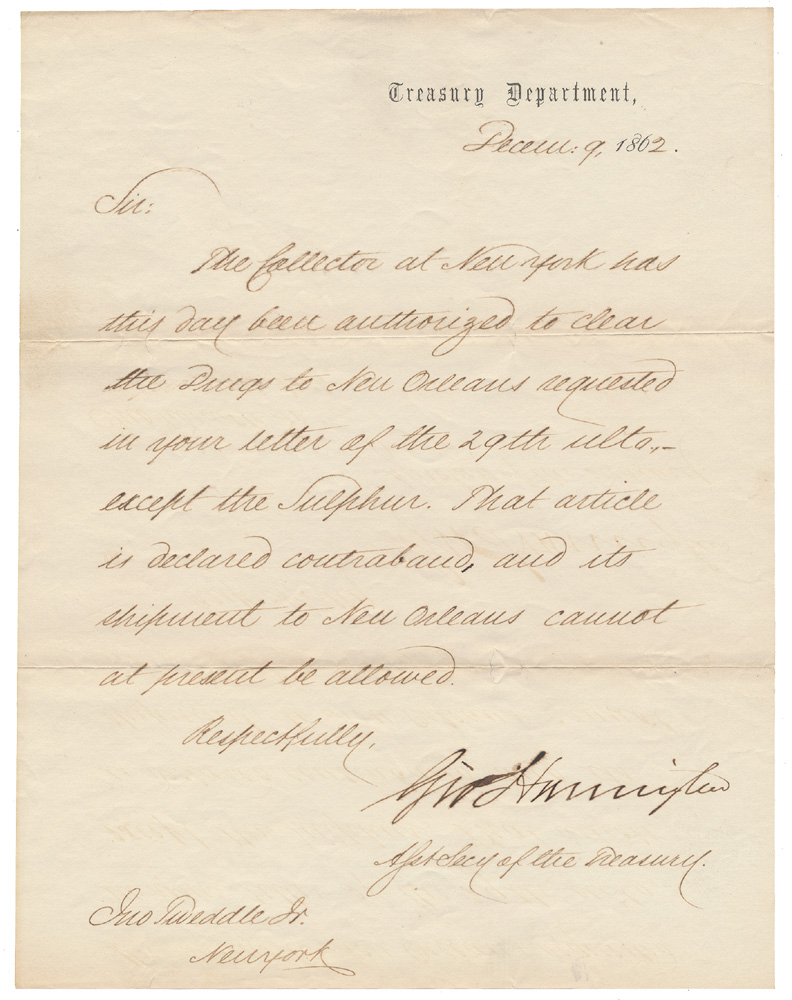 Treasury Department,
Decem: 9, 1862.
Sir:
The Collector at New York has
this day been authorized to clear
the Drugs to New Orleans requested
in your letter of the 29th ulto,–
except the Sulphur. That article
is declared contraband, and its
shipment to New Orleans cannot
at present be allowed.
Respectfully,
Geo Harrington
Asst Secy of the Treasury.
Jno Tweddle Jr.
New York